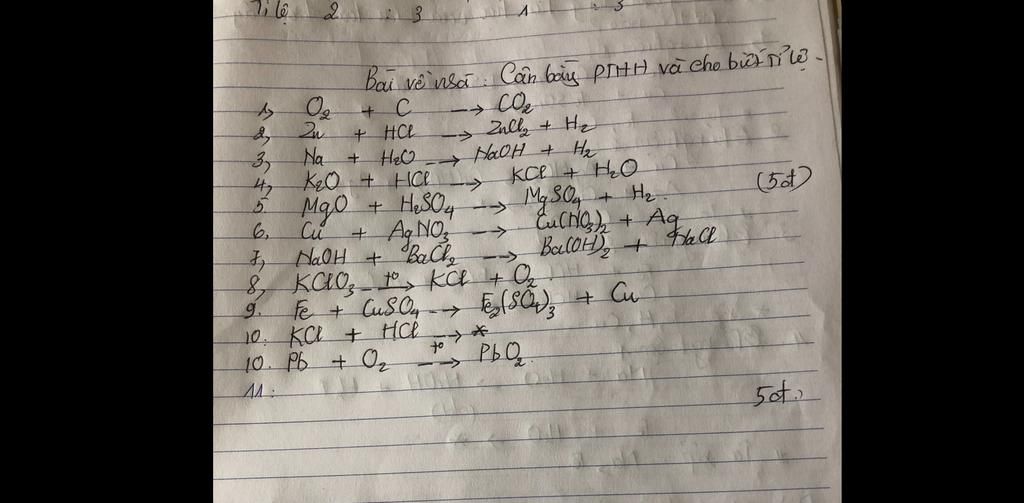 Tỉ lệ 2 : 3 1 : 3
Bài về nhà : Cân bằng PTHH và cho biết tỉ lệ.
1, O₂ + C --→ CO₂
2, Zn + HCl --→ ZnCl₂ + H₂
3, Na + H₂O --→ NaOH + H₂
4, K₂O + HCl --→ KCl + H₂O
(5đ)
5. MgO + H₂SO₄ --→ MgSO₄ + H₂.
6, Cu + AgNO₃ --→ Cu(NO₃)₂ + Ag
7, NaOH + BaCl₂ --→ Ba(OH)₂ + NaCl
8, KClO₃ --t°→ KCl + O₂.
9. Fe + CuSO₄ --→ Fe₂(SO₄)₃ + Cu
10. KCl + HCl --→ *
10. Pb + O₂ --t°→ PbO₂.
11:
5đ.